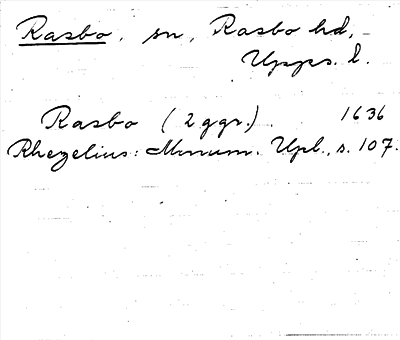 Rasbo, sn, Rasbo hd,
Upps. l.
Rasbo (2 ggr.) 1636
Rhezelius: Monum. Upl., s. 107.